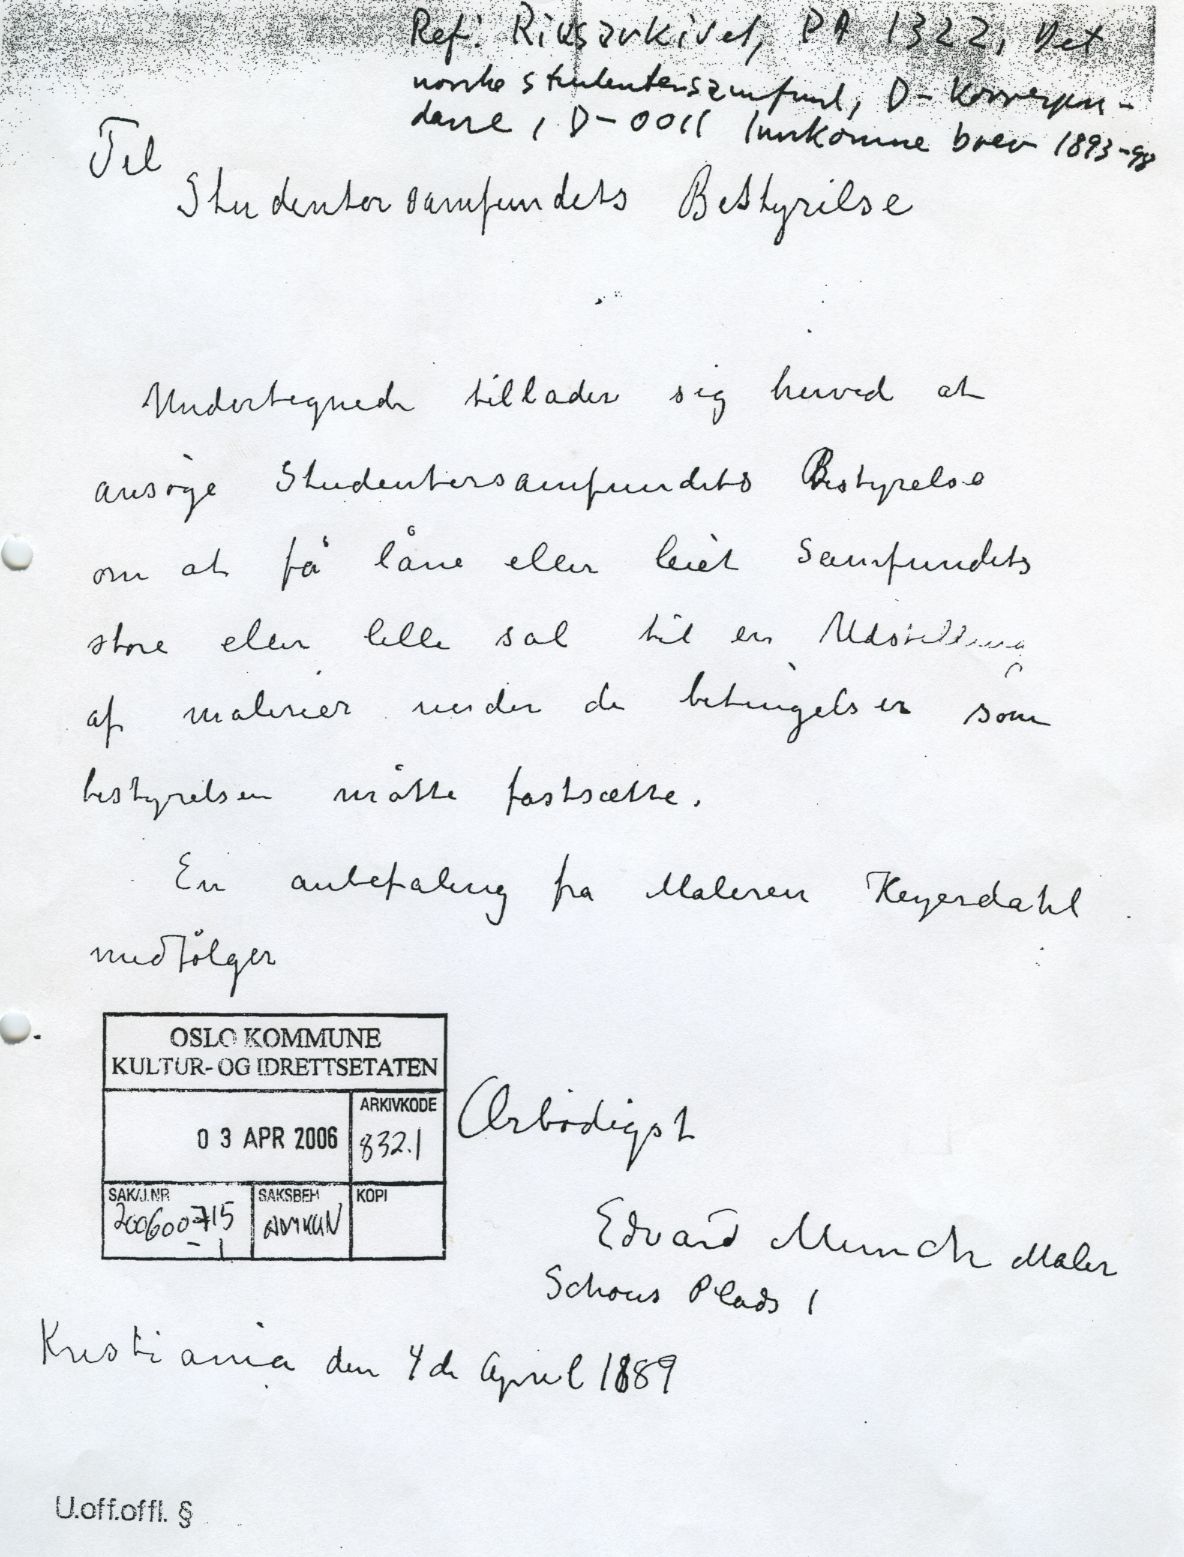 Ref: Riksarkivet, PA 1322, Det
norske studentersamfund, D-Korrespon-
danse, D-0011 Innkomne brev 1893-98
Til
Studentersamfundets Bestyrilse
Undertegnede tillader sig herved at
ansøge Studentersamfundets Bestyrelse
om at få låne eller leiet Samfundets
store eller lille sal til en Udstilling
af malerier under de betingelser som
bestyrelsen måtte fastsætte.
En anbefaling fra Maleren Heyerdahl
medfølger
OSLO KOMMUNE
KULTUR- OG IDRETTSETATEN
03 APR 2006
ARKIVKODE
832.1
SAK/J.NR
200600715
SAKSBEH
KOPI
Ærbødigst
Edvard Munch Maler
Schous Plads 1
Kristiania den 4de April 1889
U.off.offl. §